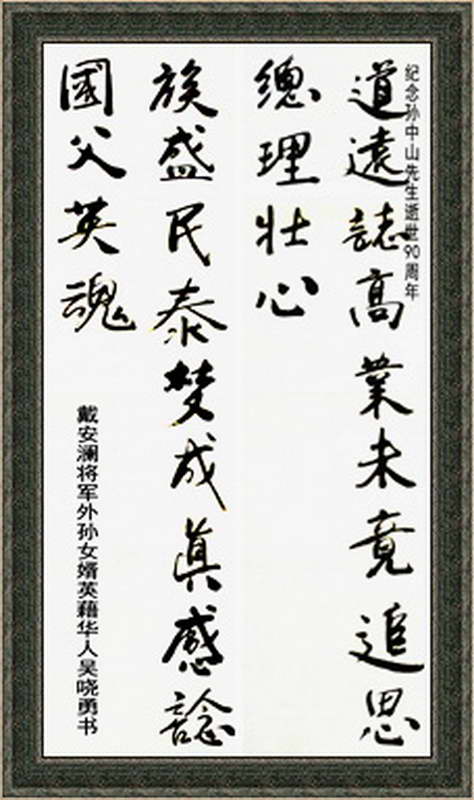 纪念孙中山先生逝世90周年
道遠誌高業未竟追思
總理壯心
族盛民泰梦成眞感諗
國父英魂
戴安澜将军外孙女婿英藉华人吴哓勇书